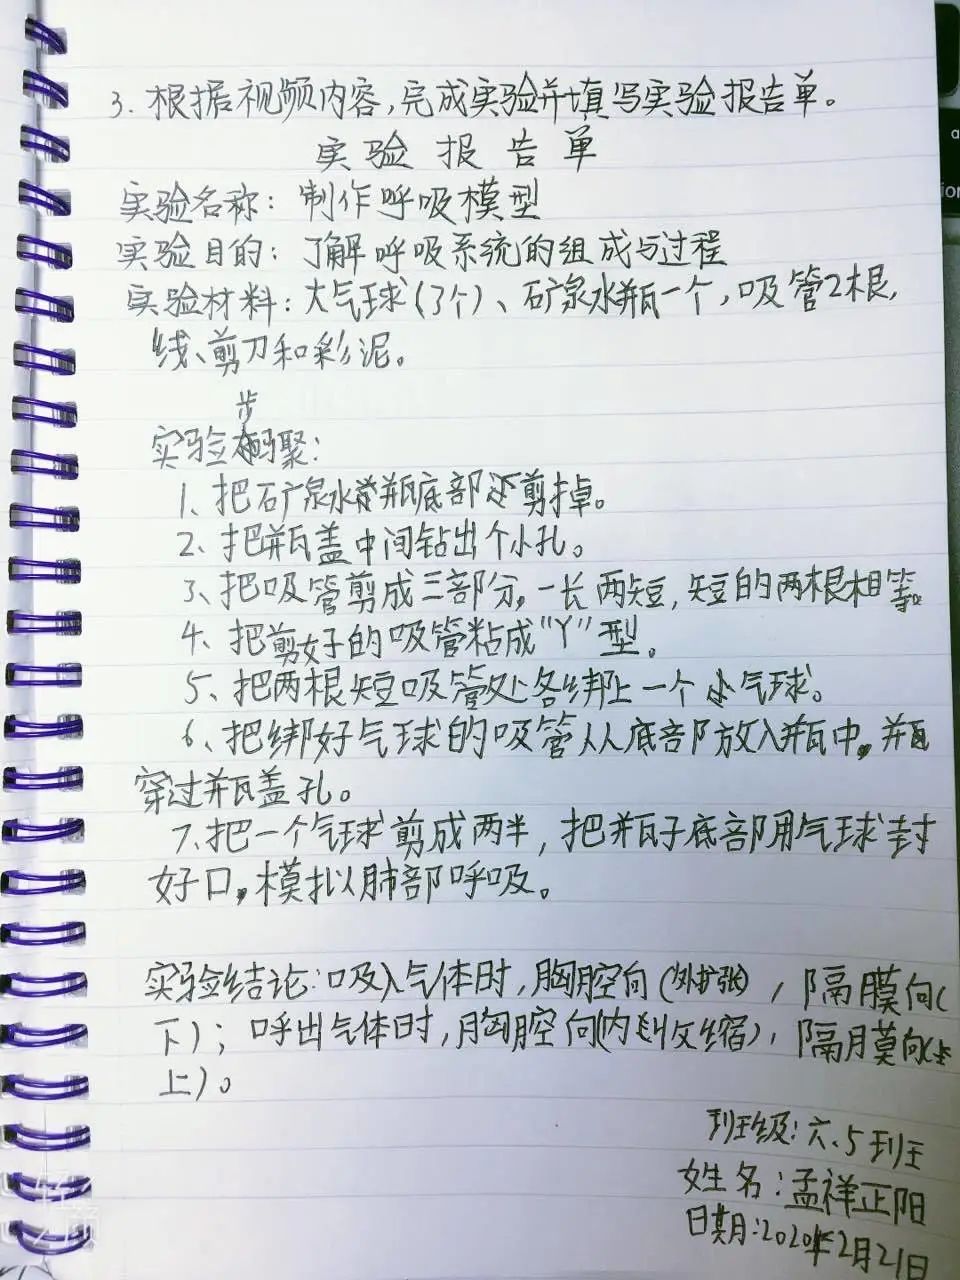 3.根据视频内容,完成实验并填写实验报告单。
实验报告单
实验名称：制作呼吸模型
实验目的：了解呼吸系统的组成与过程
实验材料：大气球(3个)、矿泉水瓶一个,吸管2根,
线、剪刀和彩泥。
实验步骤：
1、把矿泉水瓶底部剪掉。
2、把瓶盖中间钻出个小孔。
3、把吸管剪成三部分,一长两短,短的两根相等。
4、把剪好的吸管粘成"Y"型。
5、把两根短吸管处各绑上一个小气球。
6、把绑好气球的吸管从底部放入瓶中,瓶
穿过瓶盖孔。
7、把一个气球剪成两半,把瓶子底部用气球封
好口,模拟肺部呼吸。
实验结论:吸入气体时,胸腔向(外扩张),隔膜向(
下);呼出气体时,胸腔向(内收缩),隔膜向(
上)。
班级:六.5班
姓名:孟祥正阳
日期:2020年2月21日
a
ion
轻
颜